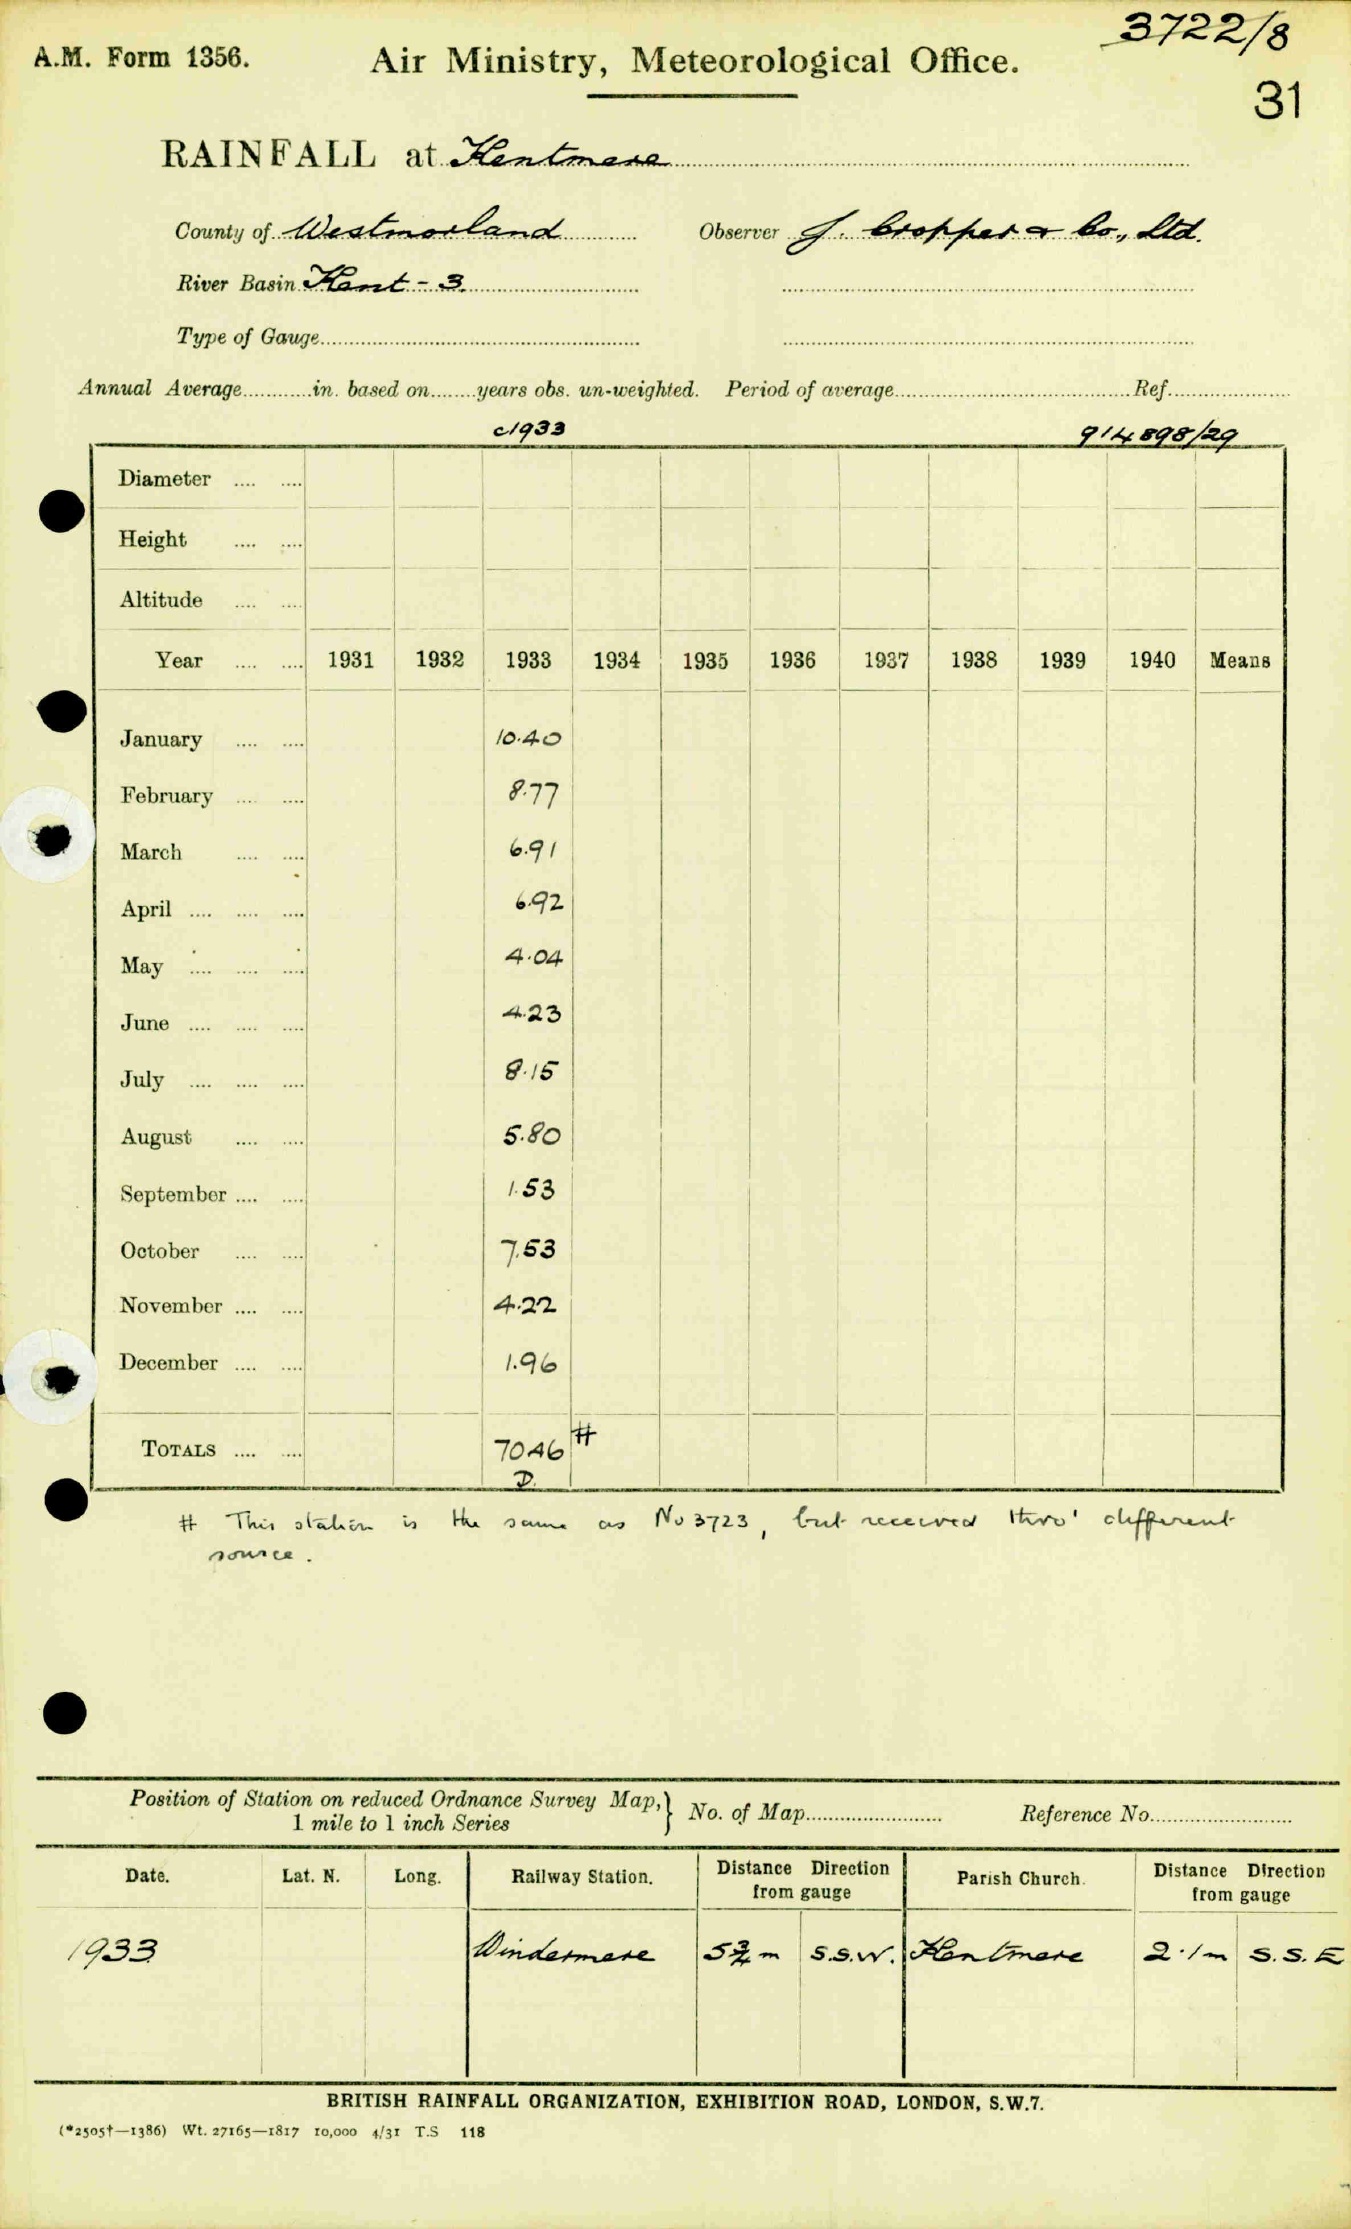 3722/8
A.M. Form 1356. Air Ministry, Meteorological Office.
31
RAINFALL at Kentmere
County of Westmorland Observer J. Cropper & Co., Ltd.
River Basin Kent - 3.
Type of Gauge
Annual Average in. based on years obs. un-weighted. Period of average Ref.
c1933 914898/29
Diameter
Height
Altitude
Year 1931 1932 1933 1934 1935 1936 1937 1938 1939 1940 Means
January 10.40
February 8.77
March 6.91
April 6.92
May 4.04
June 4.23
July 8.15
August 5.80
September 1.53
October 7.53
November 4.22
December 1.96
TOTALS 70.46 #
D.
# This station is the same as No 3723, but received thro' different
source.
Position of Station on reduced Ordnance Survey Map, } No. of Map Reference No.
1 mile to 1 inch Series
Date. Lat. N. Long. Railway Station. Distance Direction from gauge Parish Church. Distance Direction from gauge
1933 Windermere 5¾ m S.S.W. Kentmere 2.1m S.S.E
BRITISH RAINFALL ORGANIZATION, EXHIBITION ROAD, LONDON, S.W.7.
(*2505†—1386) Wt. 27165—1817 10,000 4/31 T.S 118